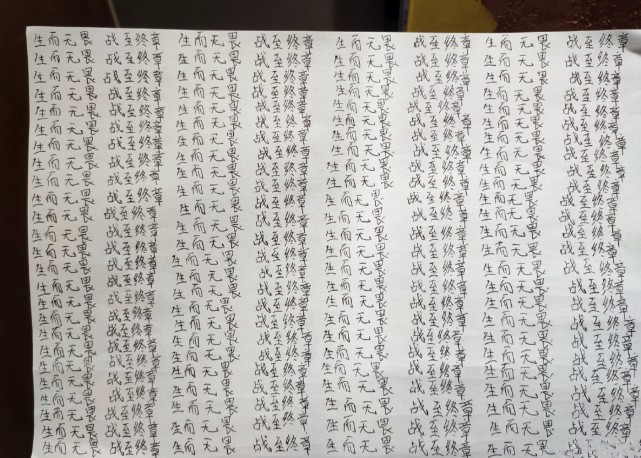 生而无畏 战至终章 生而无畏 战至终章 生而无畏 战至终章 生而无畏 战至终章
生而无畏 战至终章 生而无畏 战至终章 生而无畏 战至终章 生而无畏 战至终章
生而无畏 战至终章 生而无畏 战至终章 生而无畏 战至终章 生而无畏 战至终章
生而无畏 战至终章 生而无畏 战至终章 生而无畏 战至终章 生而无畏 战至终章
生而无畏 战至终章 生而无畏 战至终章 生而无畏 战至终章 生而无畏 战至终章
生而无畏 战至终章 生而无畏 战至终章 生而无畏 战至终章 生而无畏 战至终章
生而无畏 战至终章 生而无畏 战至终章 生而无畏 战至终章 生而无畏 战至终章
生而无畏 战至终章 生而无畏 战至终章 生而无畏 战至终章 生而无畏 战至终章
生而无畏 战至终章 生而无畏 战至终章 生而无畏 战至终章 生而无畏 战至终章
生而无畏 战至终章 生而无畏 战至终章 生而无畏 战至终章 生而无畏 战至终章
生而无畏 战至终章 生而无畏 战至终章 生而无畏 战至终章 生而无畏 战至终章
生而无畏 战至终章 生而无畏 战至终章 生而无畏 战至终章 生而无畏 战至终章
生而无畏 战至终章 生而无畏 战至终章 生而无畏 战至终章 生而无畏 战至终章
生而无畏 战至终章 生而无畏 战至终章 生而无畏 战至终章 生而无畏 战至终章
生而无畏 战至终章 生而无畏 战至终章 生而无畏 战至终章 生而无畏 战至终章
生而无畏 战至终章 生而无畏 战至终章 生而无畏 战至终章 生而无畏 战至终章
生而无畏 战至终章 生而无畏 战至终章 生而无畏 战至终章 生而无畏 战至终章
生而无畏 战至终章 生而无畏 战至终章 生而无畏 战至终章 生而无畏 战至终章
生而无畏 战至终章 生而无畏 战至终章 生而无畏 战至终章 生而无畏 战至终章
生而无畏 战至终章 生而无畏 战至终章 生而无畏 战至终章 生而无畏 战至终章
生而无畏 战至终章 生而无畏 战至终章 生而无畏 战至终章 生而无畏 战至终章
生而无畏 战至终章 生而无畏 战至终章 生而无畏 战至终章 生而无畏 战至终章
生而无畏 战至终章 生而无畏 战至终章 生而无畏 战至终章 生而无畏 战至终章
生而无畏 战至终章 生而无畏 战至终章 生而无畏 战至终章 生而无畏 战至终章
生而无畏 战至终章 生而无畏 战至终章 生而无畏 战至终章 生而无畏